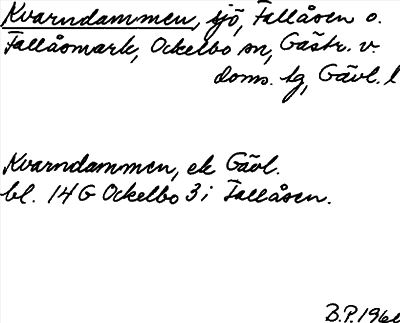 Kvarndammen, sjö, Fallåsen o.
Fallåsmark, Ockelbo sn, Gästr. v.
doms. tg, Gävl. l
Kvarndammen, ek Gävl.
bl. 14 G Ockelbo 3 i Fallåsen.
B.P. 196